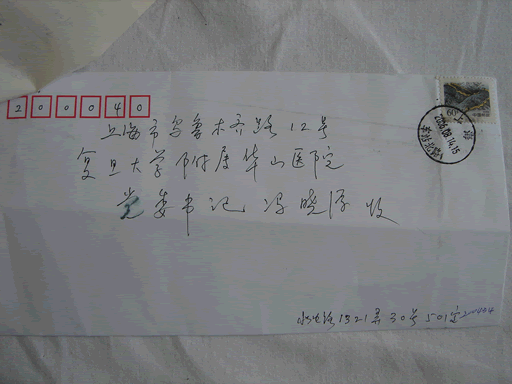 200040
上海市乌鲁木齐路12号
复旦大学附属华山医院
党委书记 冯晓源 收
上海
2006.08.14.15
1521弄30号501室